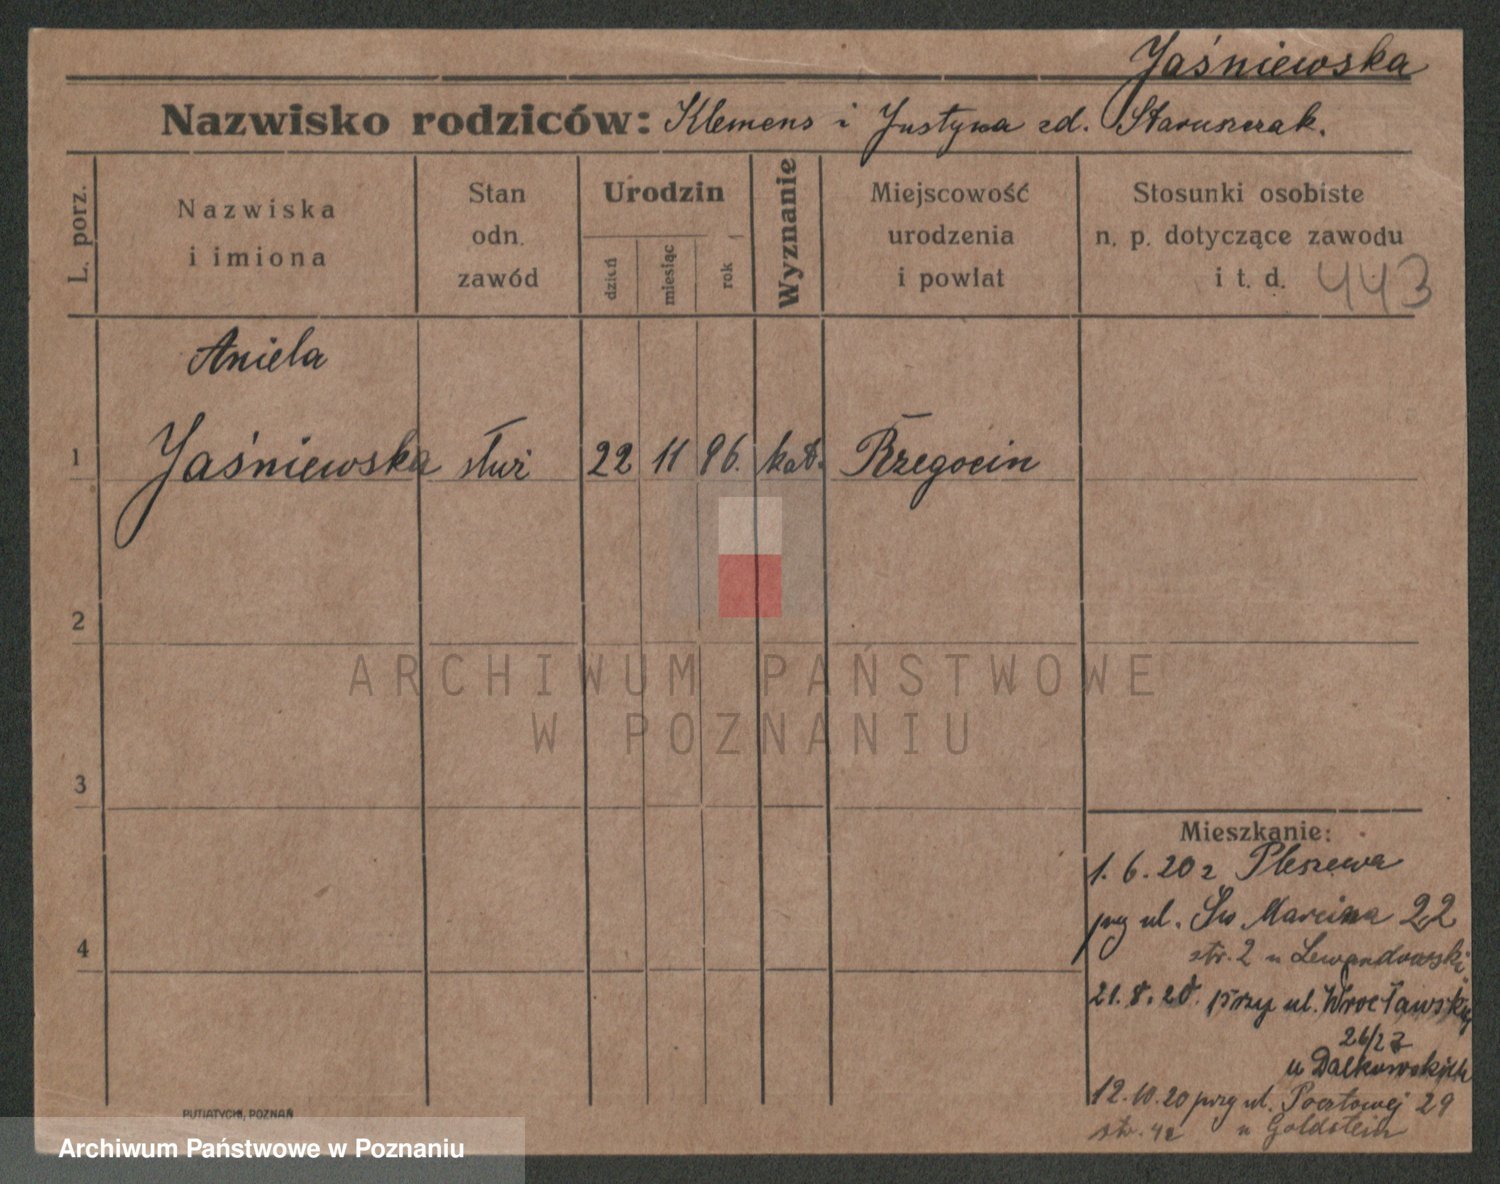 Jaśniewska
Nazwisko rodziców: Klemens i Justyna zd. Staruszczak.
L. porz.
Nazwiska
i imiona
Stan
odn.
zawód
Urodzin
dzień
miesiąc
rok
Wyznanie
Miejscowość
urodzenia
i powłat
Stosunki osobiste
n. p. dotyczące zawodu
i t. d. 443
Aniela
1 Jaśniewska służ 22 11 96. kat. Rzegocin
2
ARCHIWUM PAŃSTWOWE
W POZNANIU
3
Mieszkanie:
1. 6. 20 z Pleszewa
ul. Św. Marcina 22
str. 2 u Lewandowski
4
21. 8. 20. przy ul. Wrocławskiej
u Dalkowskich
12. 10. 20 przy ul. Pocztowej 29
u Goldstein
PUTIATYCKI, POZNAŃ
Archiwum Państwowe w Poznaniu